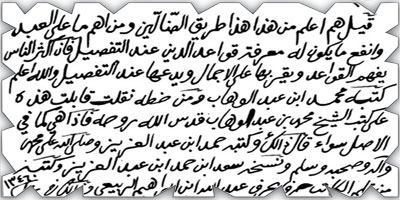 قيل هم اعلم من هذا هذا طريق الضالين ومن اهم ما على العبد
وانفع ما يكون له معرفته قواعد الدين عند التفصيل فان اكثر الناس
يفهم القواعد ويقر بها على الاجمال ويدعها عند التفصيل والله اعلم
كتبه محمد ابن عبد الوهاب ومن خطه نقلت قابلت هذه
على كتب الشيخ محمد بن عبد الوهاب قدس الله روحه فاذا هي كما في
الاصل سواء قال ذلك وكتبه حمد ابن عبد العزيز وصلى الله على محمد
واله وصحبه وسلم ونسخه سعد ابن حمد ابن عبد العزيز وكتبه
من قلم عبد الله ابن ابراهيم الربيعي ١٣٤٦